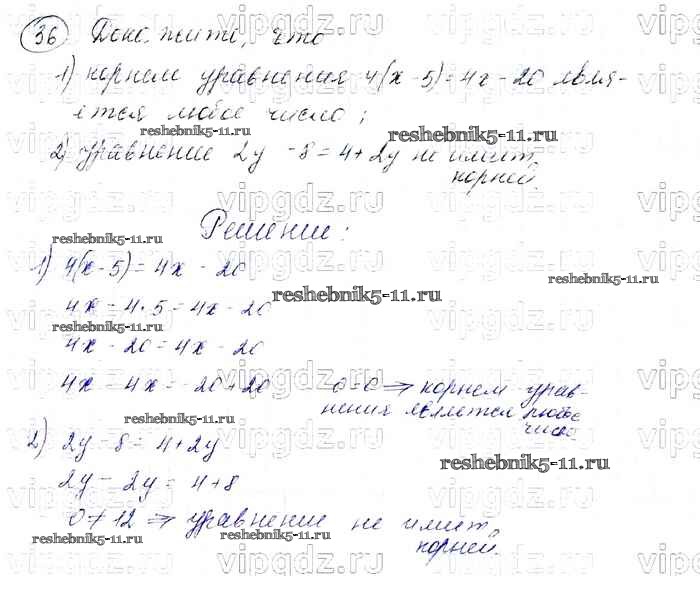 36 Докажите, что
1) корнем уравнения 4(x - 5) = 4x - 20 явля-
ется любое число;
resheebnik5-11.ru resheebnik5-11.ru
2) уравнение 2y - 8 = 4 + 2y не имеет
корней.
Решение:
reshebnik5-11.ru
1) 4(x - 5) = 4x - 20
reshebnik5-11.ru
reshebnik5-11.ru
4x = 4·5 = 4x - 20
4x - 20 = 4x - 20
4x - 4x = -20 + 20 0=0 ⇒ корнем урав-
нения является любое
число
reshebnik5-11.ru
2) 2y - 8 = 4 + 2y
reshebnik5-11.ru
2y - 2y = 4 + 8
0 ≠ 12 ⇒ уравнение не имеет
корней.
reshebnik5-11.ru reshebnik5-11.ru
vipgdz.ru